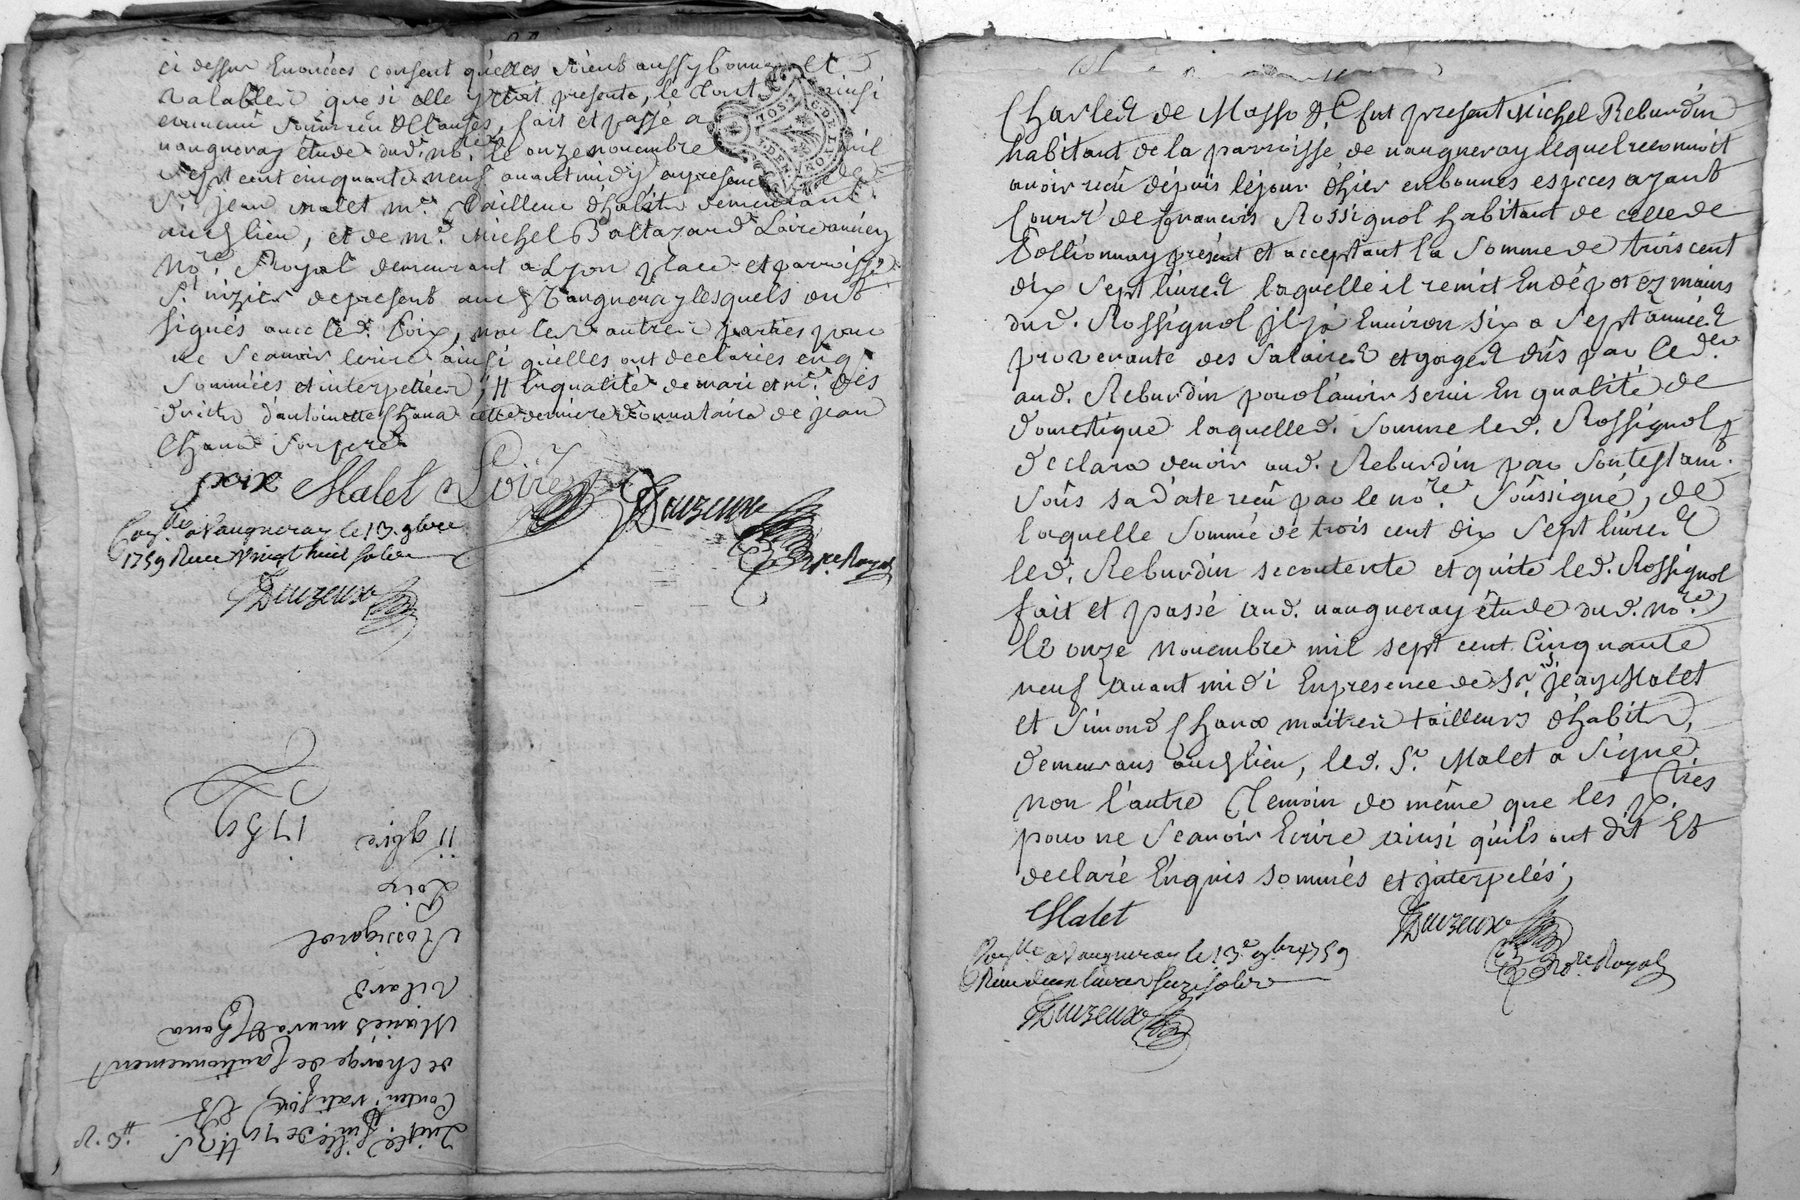 ci dessus Enoncées consent quelles soient aussy bonnes et
valables que si elle y etoit presente, le tout ainsi
convenu fait et passé a
vaugneray étude dud. no.re le onze novembre mil
sept cent cinquante neuf avant midy en presence de
Sr. jean malet me. Tailleur d'habits demeurant
aud lieu, et de me. Michel Baltazard Loire ancien
no.re Royal demeurant a Lyon place et parroisse
St. nizier de present aud Vaugneray lesquels ont
signés avec led. Poix, non les autres parties pour
ne Scavoir Ecrire ainsi quelles ont declarées enq.
Sommées et interpellées, // En qualité de mari et me. des
droits d'antoinette Chana cette derniere donnataire de jean
Chana Son pere
poix Malet Loire Deuzeux
no.re Royal
Con.llé a Vaugneray le 13. 9bre
1759 Recu vingt huit sols
Deuzeux
Charles de Masso &c fut present Michel Reburdin
habitant de la parroisse de vaugneray lequel reconnoit
avoir recû dépuis le jour d'hier en bonnes especes ayant
Cours de francois Rossignol habitant de celle de
Pollionnay présent et acceptant la Somme de trois cent
dix Sept livres laquelle il remit En dépot ez mains
dud. Rossignol il ja Environ six a Sept années
provenante des Salaires et gages dûs par led.
aud. Reburdin pour l'avoir servi En qualité de
domestique laquelle d. Somme led. Rossignol
déclara devoir aud. Reburdin par Son testam.
Sous sa date recû par le no.re Soussigné, de
laquelle Somme de trois cent dix Sept livres
led. Reburdin se contente et quite led. Rossignol
fait et passé aud. vaugneray étude dud. no.re
le onze novembre mil sept cent Cinquante
neuf avant midi En presence de Sr. jean Malet
et Simond Chana maitres tailleurs d'habits,
demeurans aud lieu, led. Sr. Malet a Signé
non l'autre Temoin de même que les p.ties
pour ne Scavoir Ecrire ainsi qu'ils ont dit Et
declaré Enquis sommés et interpelés,
Malet Deuzeux
no.re Royal
Con.llé a Vaugneray le 13.e 9bre 1759
Recu deux livres seize sols
Deuzeux
Conten. ratiffion Et
de charge de Cautionnement
Mariés marad Chana
vilard
Rossignol
Poix
11 9bre
1759